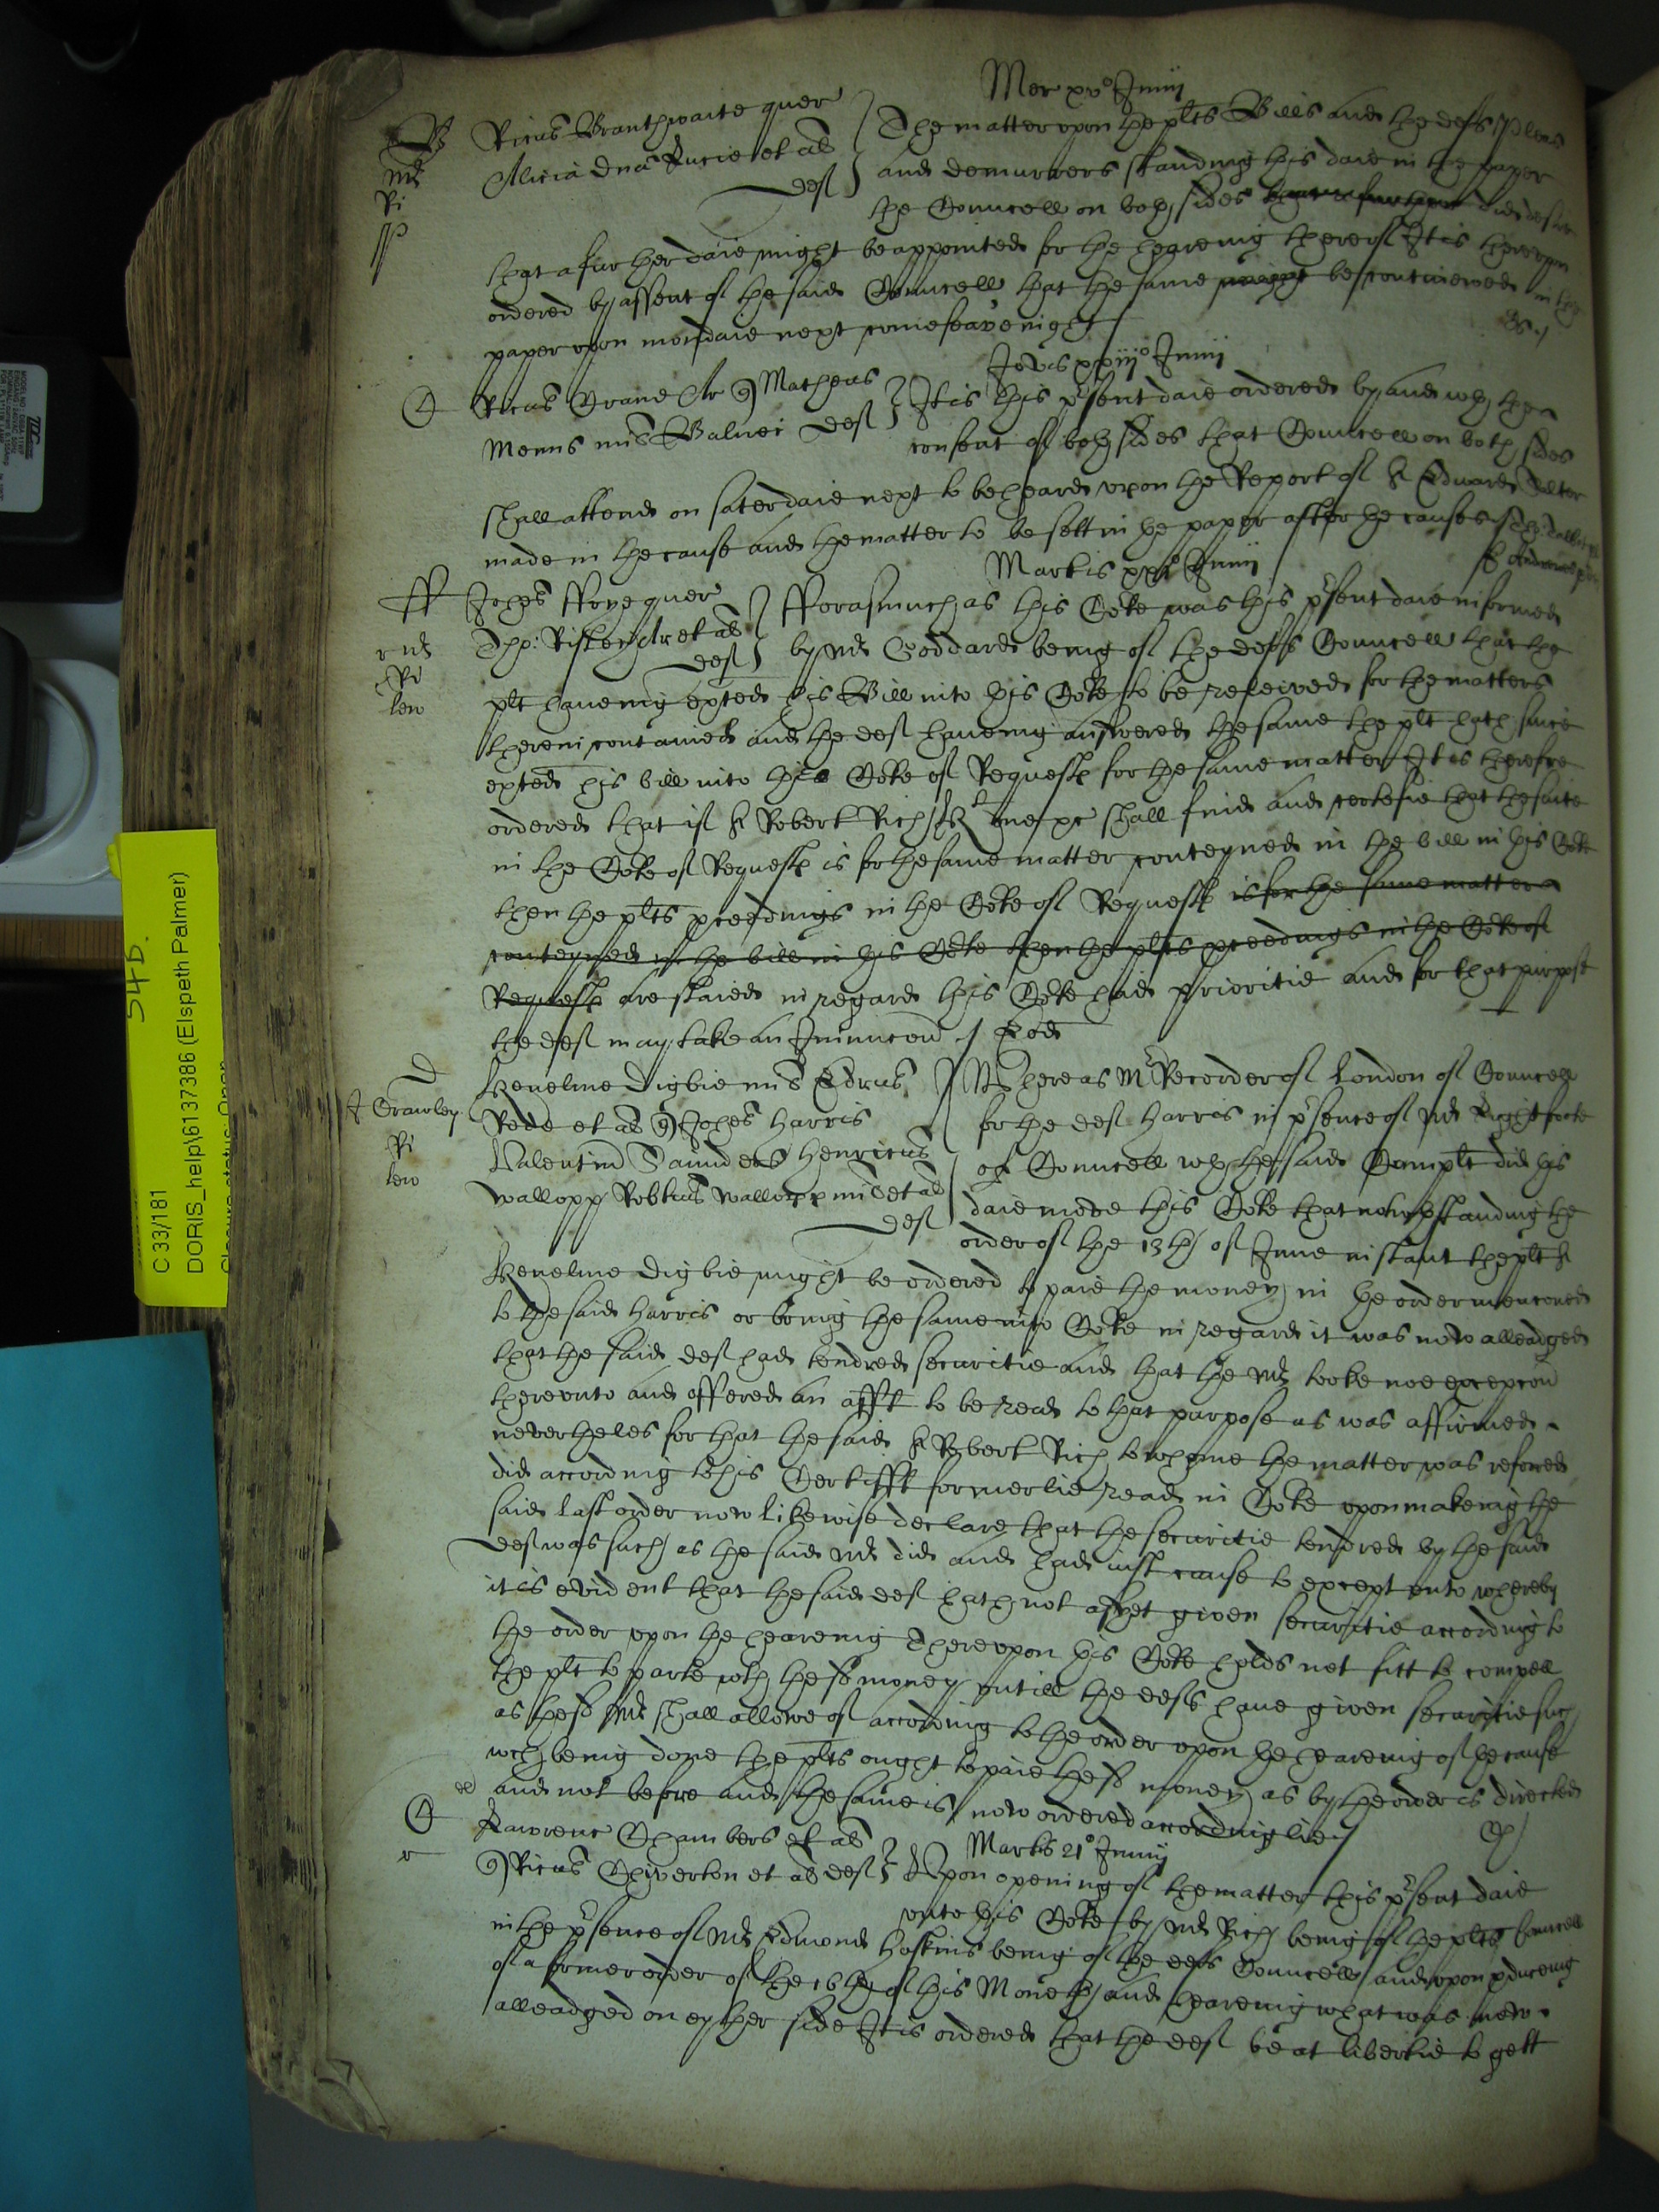 Mer xv° Junij
B
Mr
Ri
p
Ricus Branthwaite quer
Alicia dna Lucie et al
def
The matter vpon the plts Bills and the defs Pleas
and demurrers standing this daie in the paper
the Councell on both sides did desire
that a further daie might be appointed for the heareing thereof It is therevpon
ordered by assent of the said Councell that the same be contineued in the
paper vpon mondaie next come seavenight
Jovis xxiij° Junij
Ricus Grame Ar Matheus
Menns mil Balnei def
It is this psent daie ordered by and wth the
consent of both sides that Councell on both sides
shall attend on saterdaie next to be heard vpon the Report of Sr Edward Salter
made in the cause and the matter to be sett in the paper after the causes
Martis xxj° Junij
ff
r Mr
Ri
lew
Johes ffrye quer
Tho: Risley Ar et al
def
fforasmuch as this Corte was this psent daie informed
by Mr Goddard being of the defts Councell that the
plt haueing exted his Bill into this Corte to be releived for the matters
therein contained and the def haueing answered the same the plt hath since
exted his bill into his Corte of Requests for the same matter It is therefore
ordered that if Sr Robert Rich kt one &c shall find and certefie that the suite
in the Corte of Requests is for the same matter conteyned in the bill in this Corte
then the plts pceedings in the Corte of Requests is for the same matter
conteyned in the bill in this Corte then the plts pceedings in the Corte of
Requests are staied in regard this Corte had prioritie and for that purpose
the def may take an Iniuncon
D
J Crawley
Ri
lew
Kenelme Digbie mil Edrus
Rede et al Johes Harris
Valentin Saunders Henricus
Wallopp Robtus Wallopp mil et al
def
Whereas Mr Recorder of London of Councell
for the def Harris in psence of Mr Lightfoote
of Councell wth the said Complt did this
daie move this Corte that notwthstanding the
order of the 13th of June instant the plt Sr
Kenelme Digbie might be ordered to paie the money in the order menconed
to the said Harris or bring the same into Corte in regard it was now alleadged
that the said def had tendred securitie and that the Mr tooke noe excepcon
therevnto and offered an afft to be read to that purpose as was affirmed
neverheles for that the said Sr Robert Rich to whome the matter was referred
did according to his Certifft formerlie read in Corte vpon makeing the
said last order now likewise declare that the securitie tendred by the said
def was such as the said Mr did and had iust cause to except vnto whereby
it is evident that the said def hath not as yet given securitie according to
the order vpon the heareing Therevpon this Corte holds not fitt to compell
the plt to parte wth the sd money vntill the defts haue given securitie such
as the sd Mr shall allowe of according to the order vpon the heareing of the cause
wch being done the plts ought to paie the sd money as by the order is directed
and not before and the same is now ordered accordinglie
Martis 21° Junij
r
Lawrenc Chambers et al
Ricus Chiverton et al def
Vpon opening of the matter this psent daie
vnto this Corte by Mr Rich being of the plts Councell
in the psence of Mr Edmond Hoskins being of the defts Councell and vpon pduceing
of a former order of the 16th of this Moneth and heareing what was now
alleadged on eyther side It is ordered that the def be at libertie to gett
54D.
C 33/181
DORIS_help\6137386 (Elspeth Palmer)